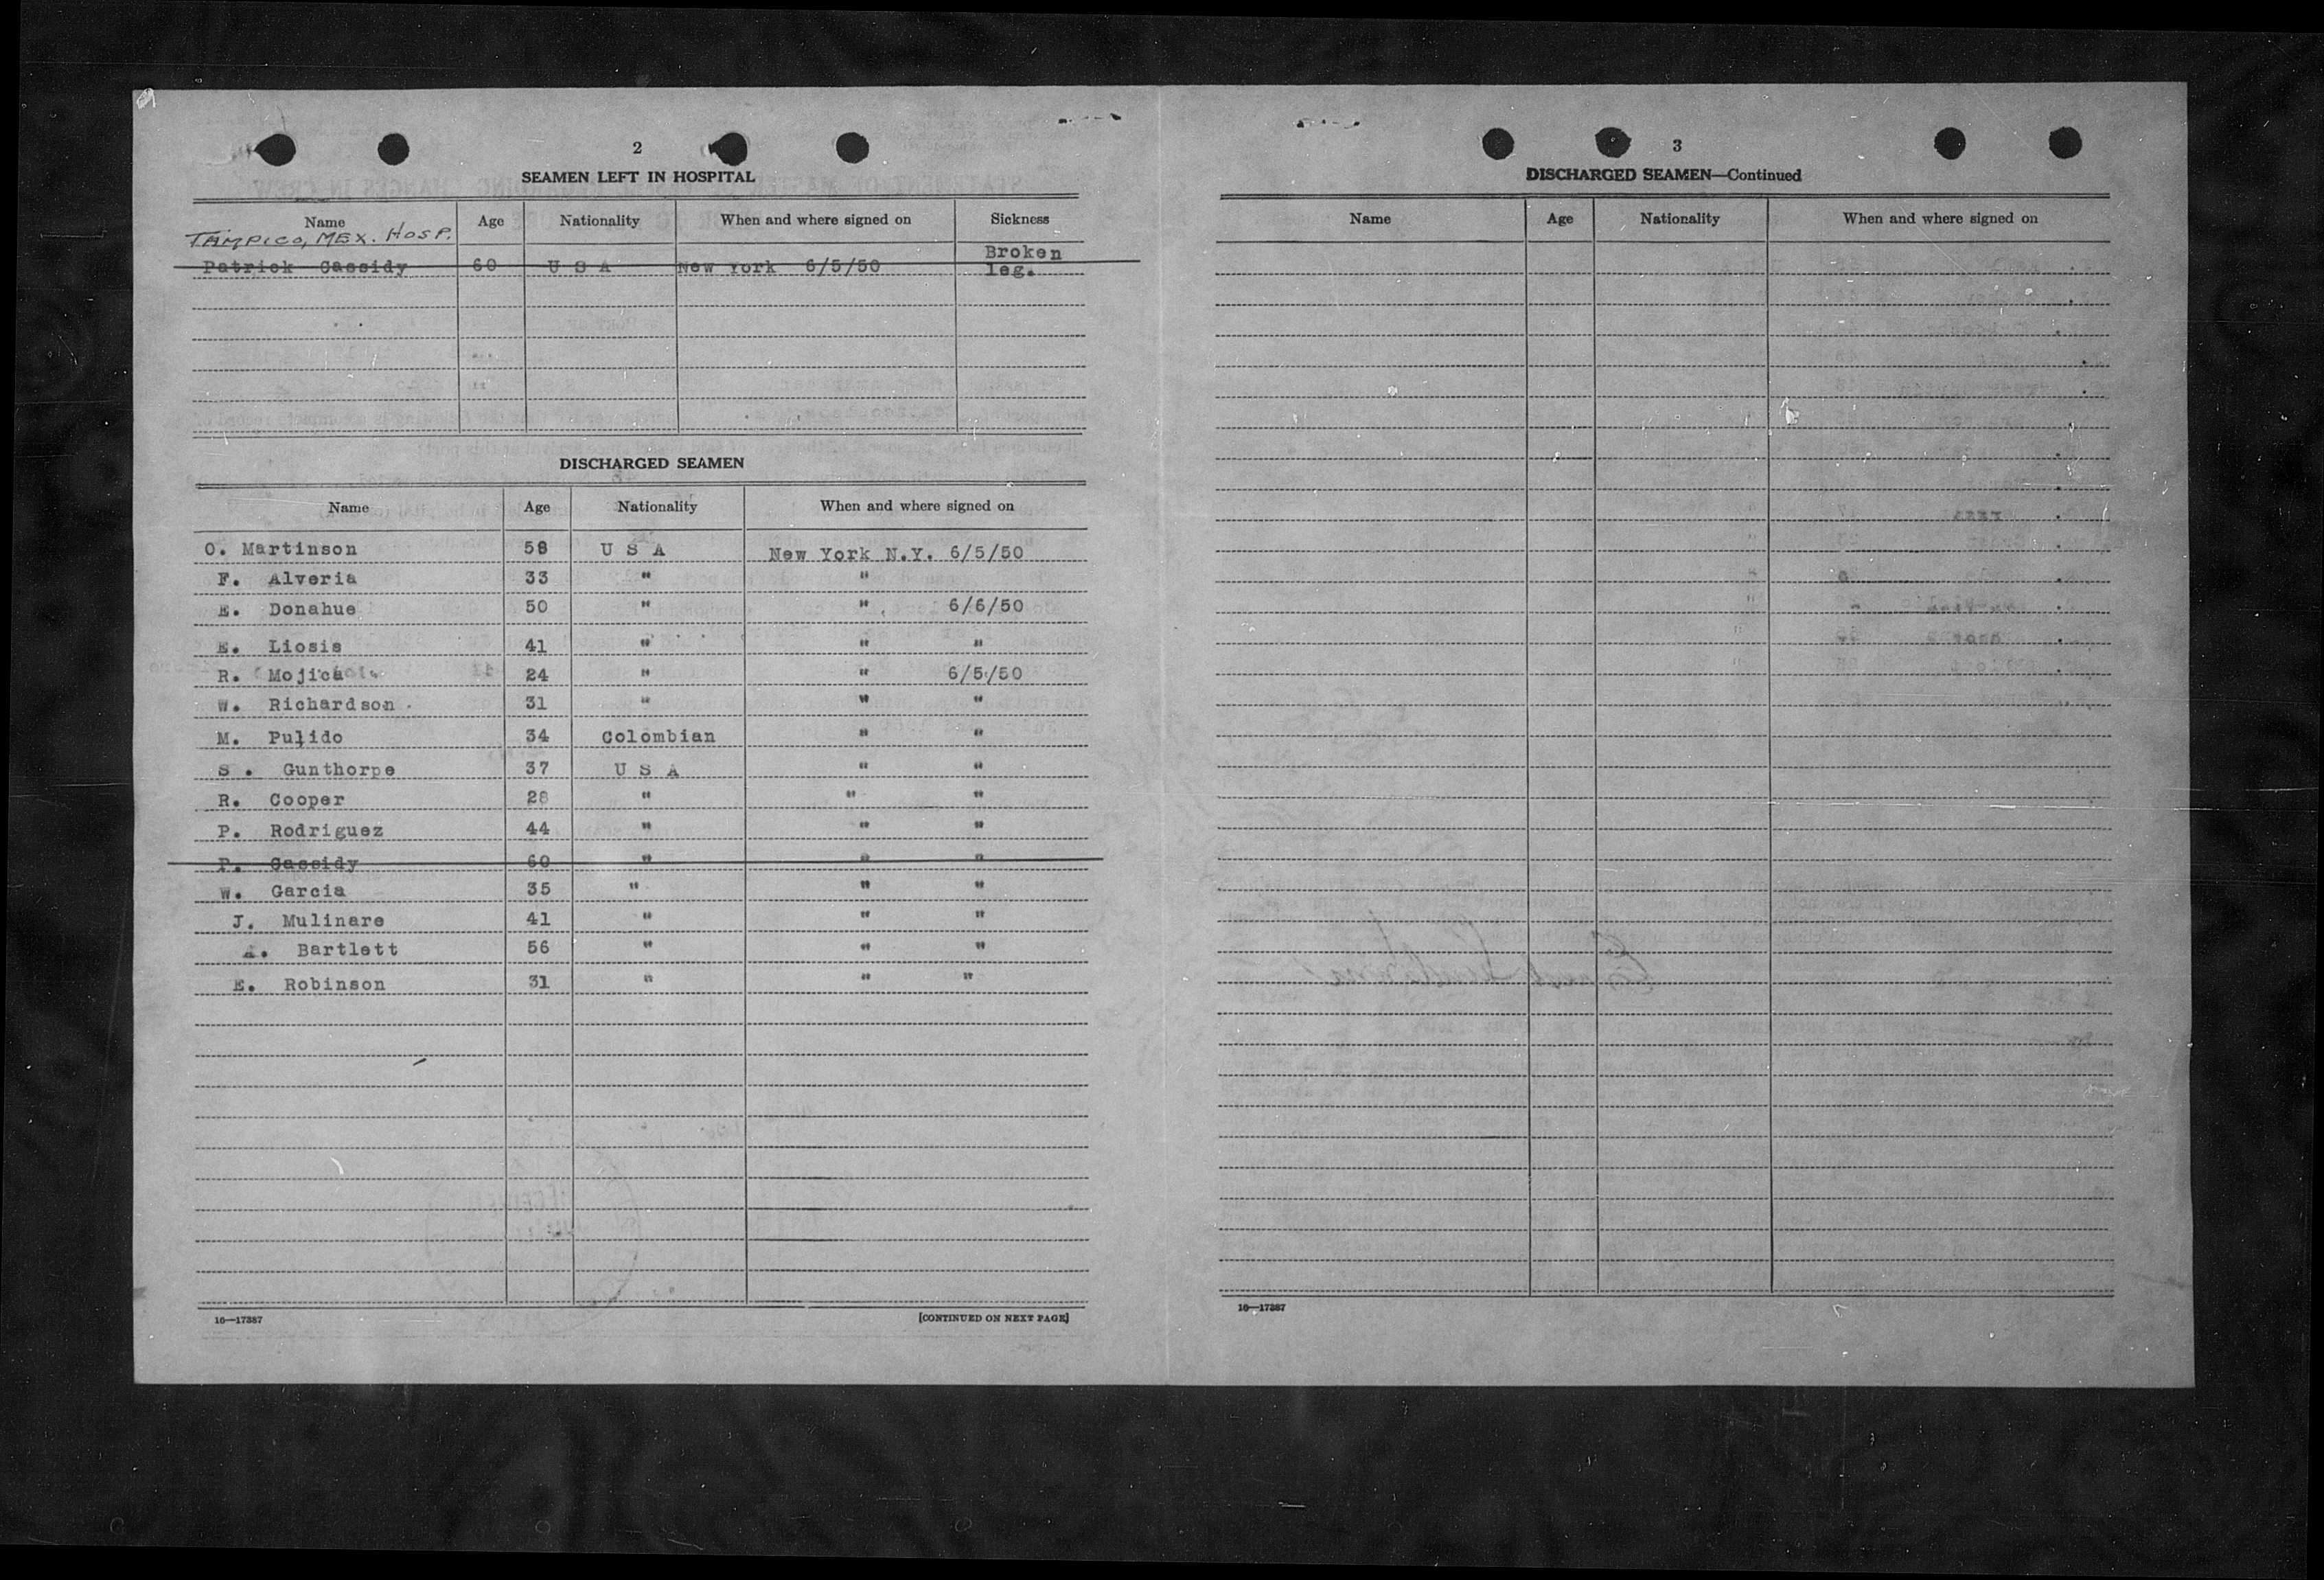 2
SEAMEN LEFT IN HOSPITAL
Name Age Nationality When and where signed on Sickness
TAMPICO, MEX. HOSP.
Patrick Cassidy 60 U S A New York 6/5/50 Broken
leg.
DISCHARGED SEAMEN
Name Age Nationality When and where signed on
O. Martinson 58 U S A New York N.Y. 6/5/50
F. Alveria 33 " "
E. Donahue 50 " " 6/6/50
E. Liosis 41 " " "
R. Mojica 24 " " 6/5/50
W. Richardson 31 " " "
M. Pulido 34 Colombian " "
S. Gunthorpe 37 U S A " "
R. Cooper 28 " " "
P. Rodriguez 44 " " "
P. Cassidy 60 " " "
W. Garcia 35 " " "
J. Mulinare 41 " " "
A. Bartlett 56 " " "
E. Robinson 31 " " "
16—17387 [CONTINUED ON NEXT PAGE]
3
DISCHARGED SEAMEN—Continued
Name Age Nationality When and where signed on
16—17387